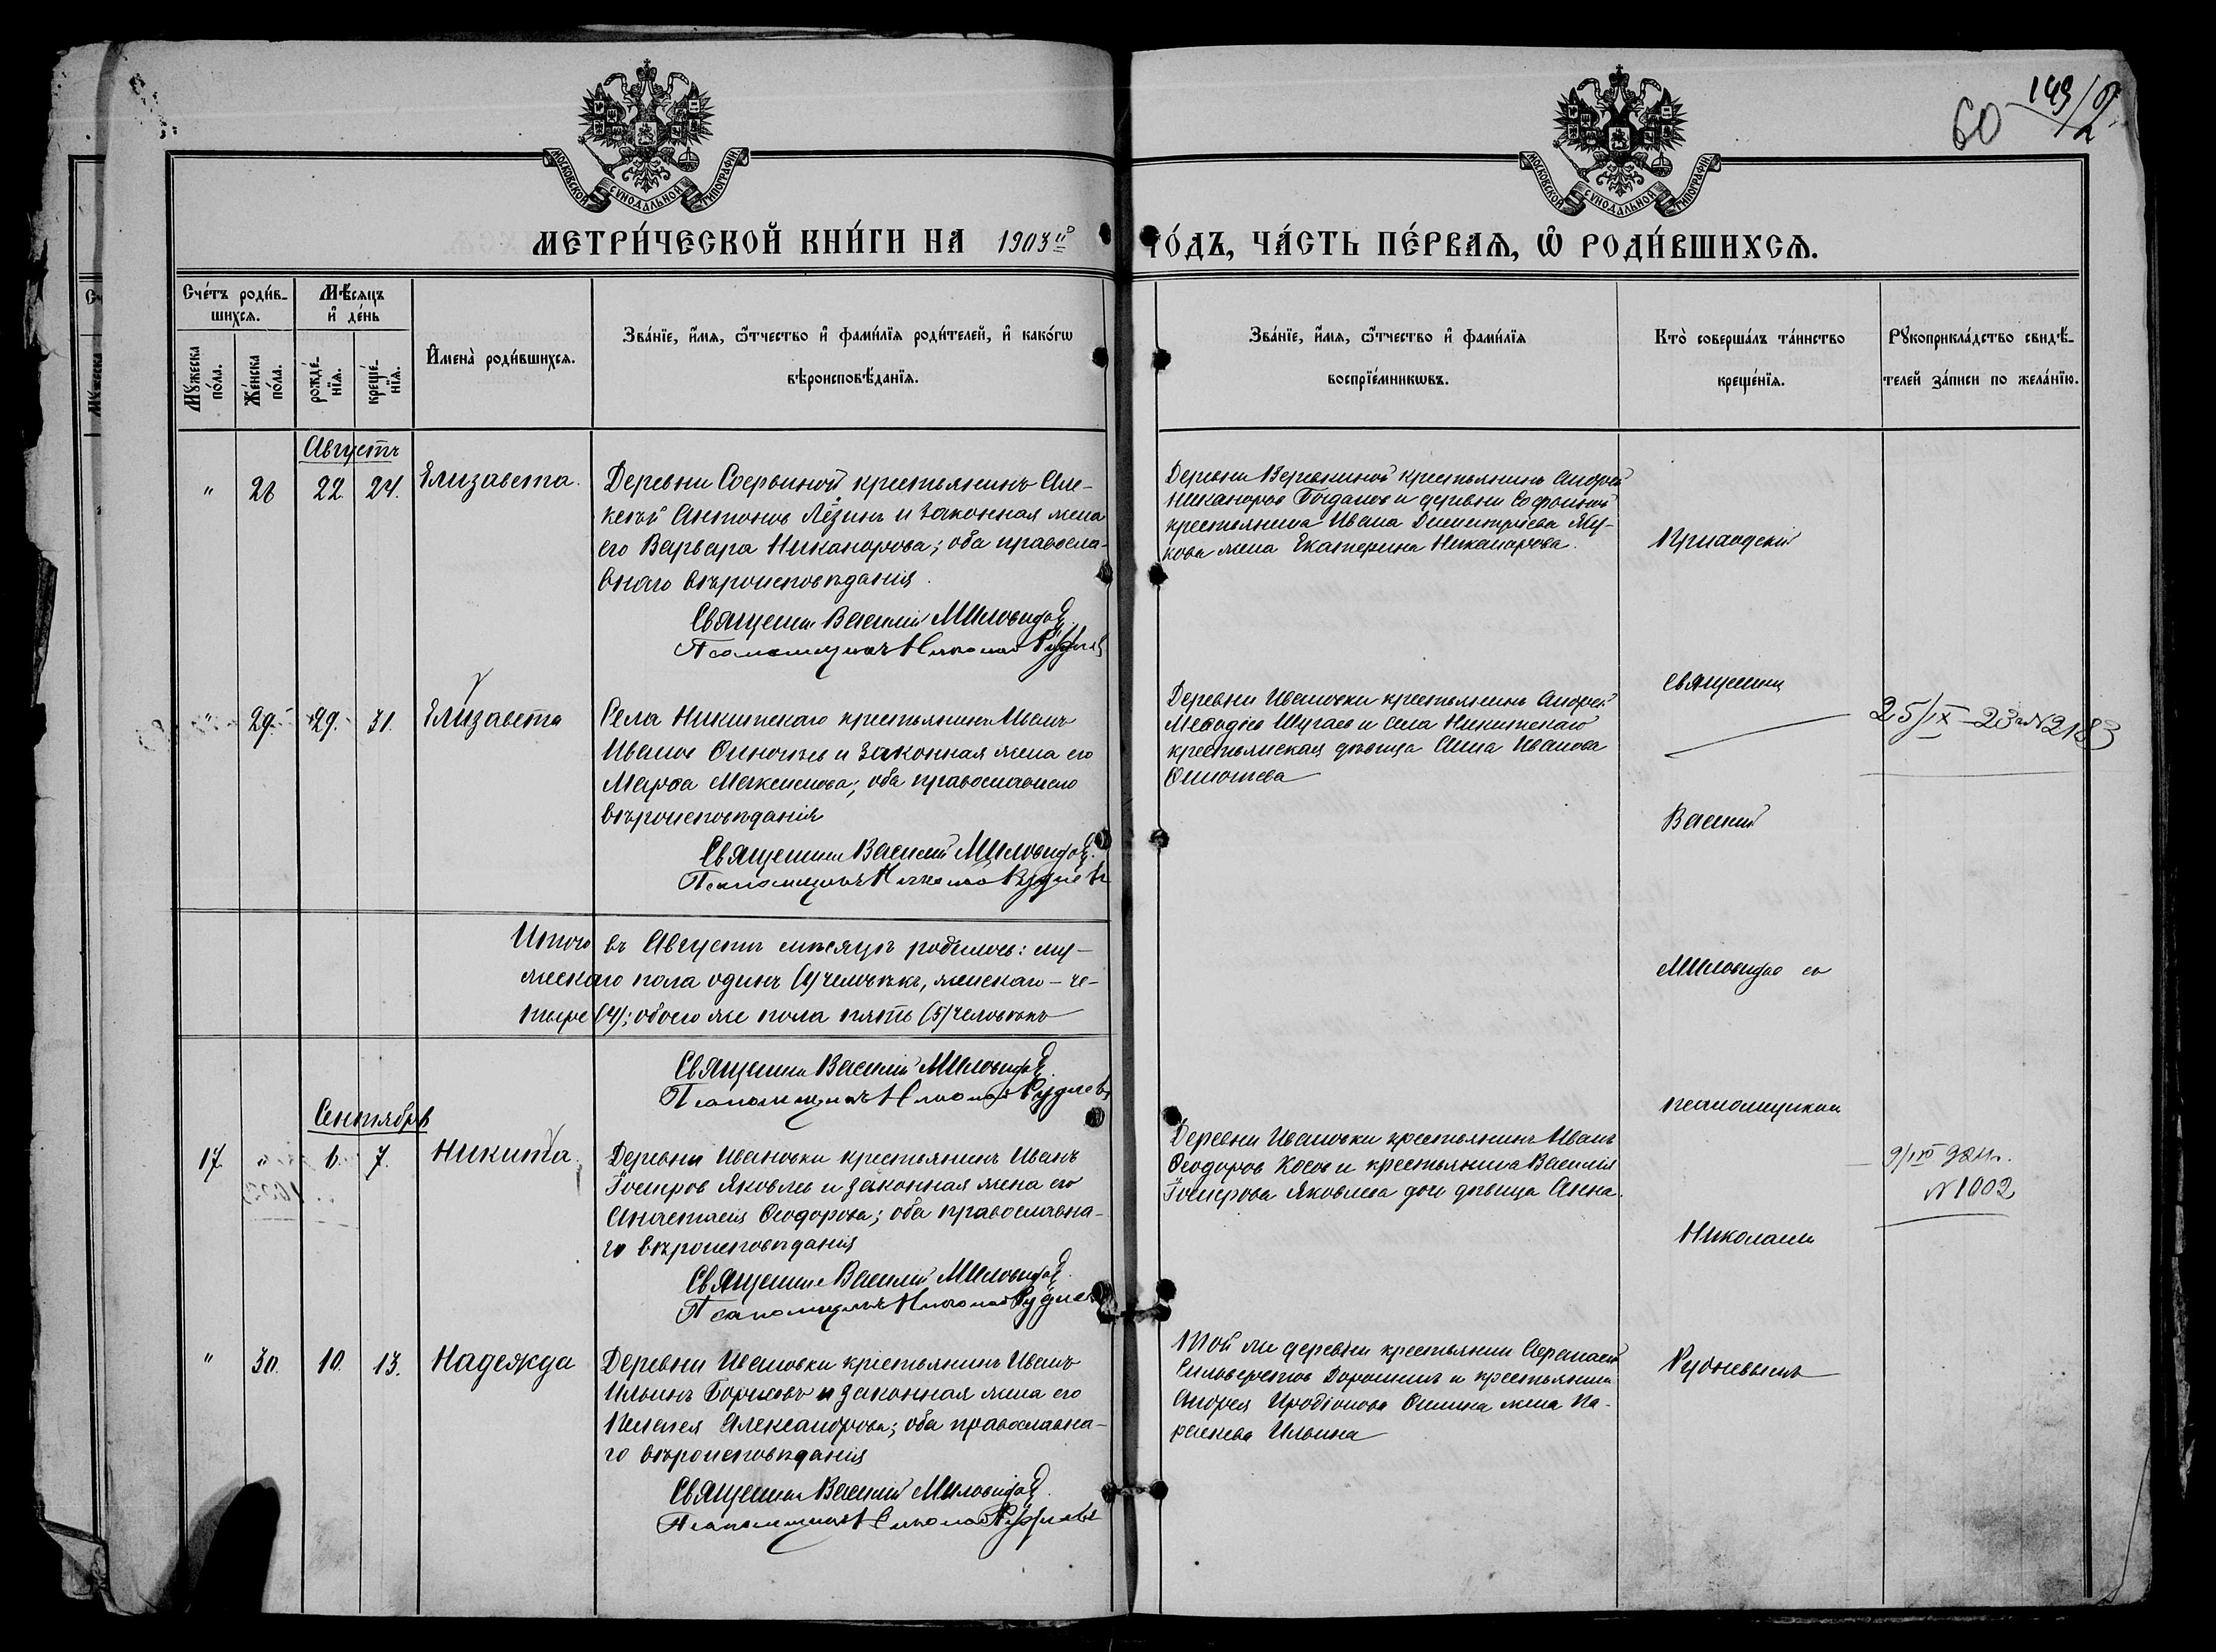 149/2
60
МОСКОВСКОЙ СѴНОДАЛЬНОЙ ТИПОГРАФІИ
МОСКОВСКОЙ СѴНОДАЛЬНОЙ ТИПОГРАФІИ
МЕТРИ́ЧЕСКОЙ КНИ́ГИ НА 1903й ГО́ДЪ, ЧА́СТЬ ПЕ́РВАѦ, Ѡ РОДИ́ВШИХСѦ.
Сче́тъ роди́в-
шихсѧ.
Мѣ́сѧцъ
и҆ де́нь
Мꙋ́жеска
по́ла.
Же́нска
по́ла.
рожде́-
нїѧ.
креще́-
нїѧ.
И҆мена̀ роди́вшихсѧ.
Зва́нїе, и҆́мѧ, ѻ҆́тчество и҆ фами́лїѧ роди́телей, и҆ како́гѡ
вѣроисповѣ́данїѧ.
Зва́нїе, и҆́мѧ, ѻ҆́тчество и҆ фами́лїѧ
воспрїе́мникѡвъ.
Кто̀ соверша́лъ та́инство
креще́нїѧ.
Рꙋкоприкла́дство свидѣ́-
телей за́писи по жела́нїю.
Августъ
" 28 22. 24. Елизавета.
Деревни Софьиной крестьянинъ Але-
ксѣй Антоновъ Лёзинъ и законная жена
его Варвара Никанорова; оба правосла-
внаго вѣроисповѣданія.
Священник Василій Миловидов.
Псаломщикъ Николай Руднев
Деревни крестьянинъ Андрей
Никаноров Богданов и деревни Софьиной
крестьянина Ивана Димитріева Жу-
кова жена Екатерина Никанорова.
Приходскій
" 29. 29. 31. Елизавета
Села Никитскаго крестьянинъ Иванъ
Иванов и законная жена его
Марѳа Максимова; оба православнаго
вѣроисповѣданія
Священник Василій Миловидов.
Псаломщикъ Николай Руднев
Деревни Ивановки крестьянинъ Андрей
Меѳодіев Шугаев и села Никитскаго
крестьянская дѣвица Анна Иванова
священник
25/IX-23г. №2183
Василій
Итого въ Августѣ мѣсяцѣ родилось: му-
жескаго пола одинъ (1) человѣкъ, женскаго – че-
тыре (4); обоего же пола пять (5) человѣкъ
Миловидов со
Священник Василій Миловидов.
Псаломщикъ Николай Руднев
псаломщиком
Сентябрь
17. " 6. 7. Никита.
Деревни Ивановки крестьянинъ Иванъ
Гомеров Яковлев и законная жена его
Анастасія Ѳеодорова; оба православна-
го вѣроисповѣданія
Священник Василій Миловидов.
Псаломщикъ Николай Руднев
Деревни Ивановки крестьянинъ Иванъ
Ѳеодоров Косов и крестьянина Василія
Гомерова Яковлева дочь дѣвица Анна.
№ 1002
Николаем
" 30. 10. 13. Надежда
Деревни Ивановки крестьянинъ Иванъ
Ильинъ Борисовъ и законная жена его
Пелагея Александрова; оба православна-
го вѣроисповѣданія
Священник Василій Миловидов.
Псаломщикъ Николай Руднев
Той же деревни крестьянин Аѳанасій
Сильверстов Дорошинъ и крестьянина
Андрея Иродіонова жена Па-
раскева Ильина
Рудневымъ